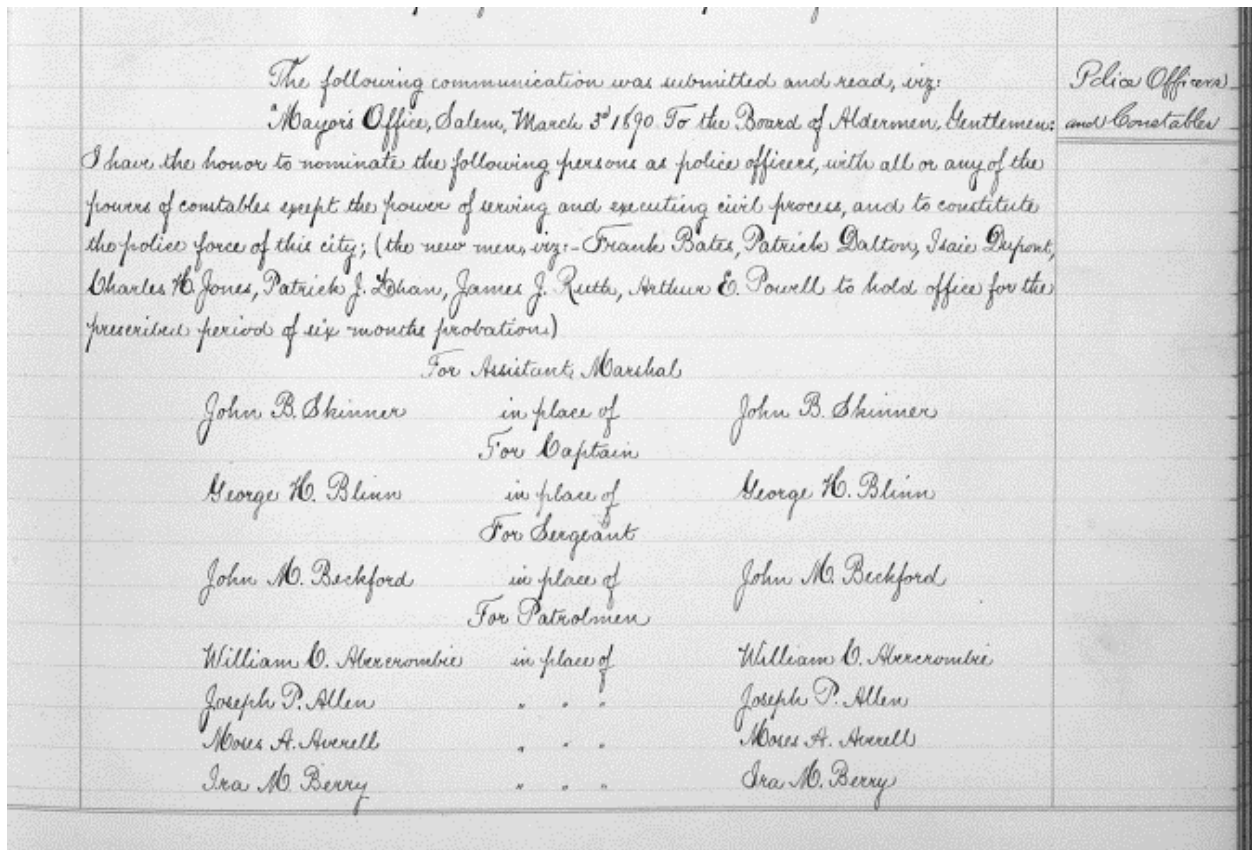 The following communication was submitted and read, viz:
Police Officers
"Mayor's Office, Salem, March 3d 1890. To the Board of Aldermen, Gentlemen:
and Constables
I have the honor to nominate the following persons as police officers, with all or any of the
powers of constables except the power of serving and executing civil process, and to constitute
the police force of this city; (the new men, viz:- Frank Bates, Patrick Dalton, Isaie Dupont,
Charles H. Jones, Patrick J. Lehan, James J. Ruth, Arthur E. Powell to hold office for the
prescribed period of six months probation.)
For Assistant Marshal
John B. Skinner in place of John B. Skinner
For Captain
George H. Blinn in place of George H. Blinn
For Sergeant
John M. Beckford in place of John M. Beckford
For Patrolmen
William C. Abercrombie in place of William C. Abercrombie
Joseph P. Allen " " " Joseph P. Allen
Moses A. Averell " " " Moses A. Averell
Ira M. Berry " " " Ira M. Berry